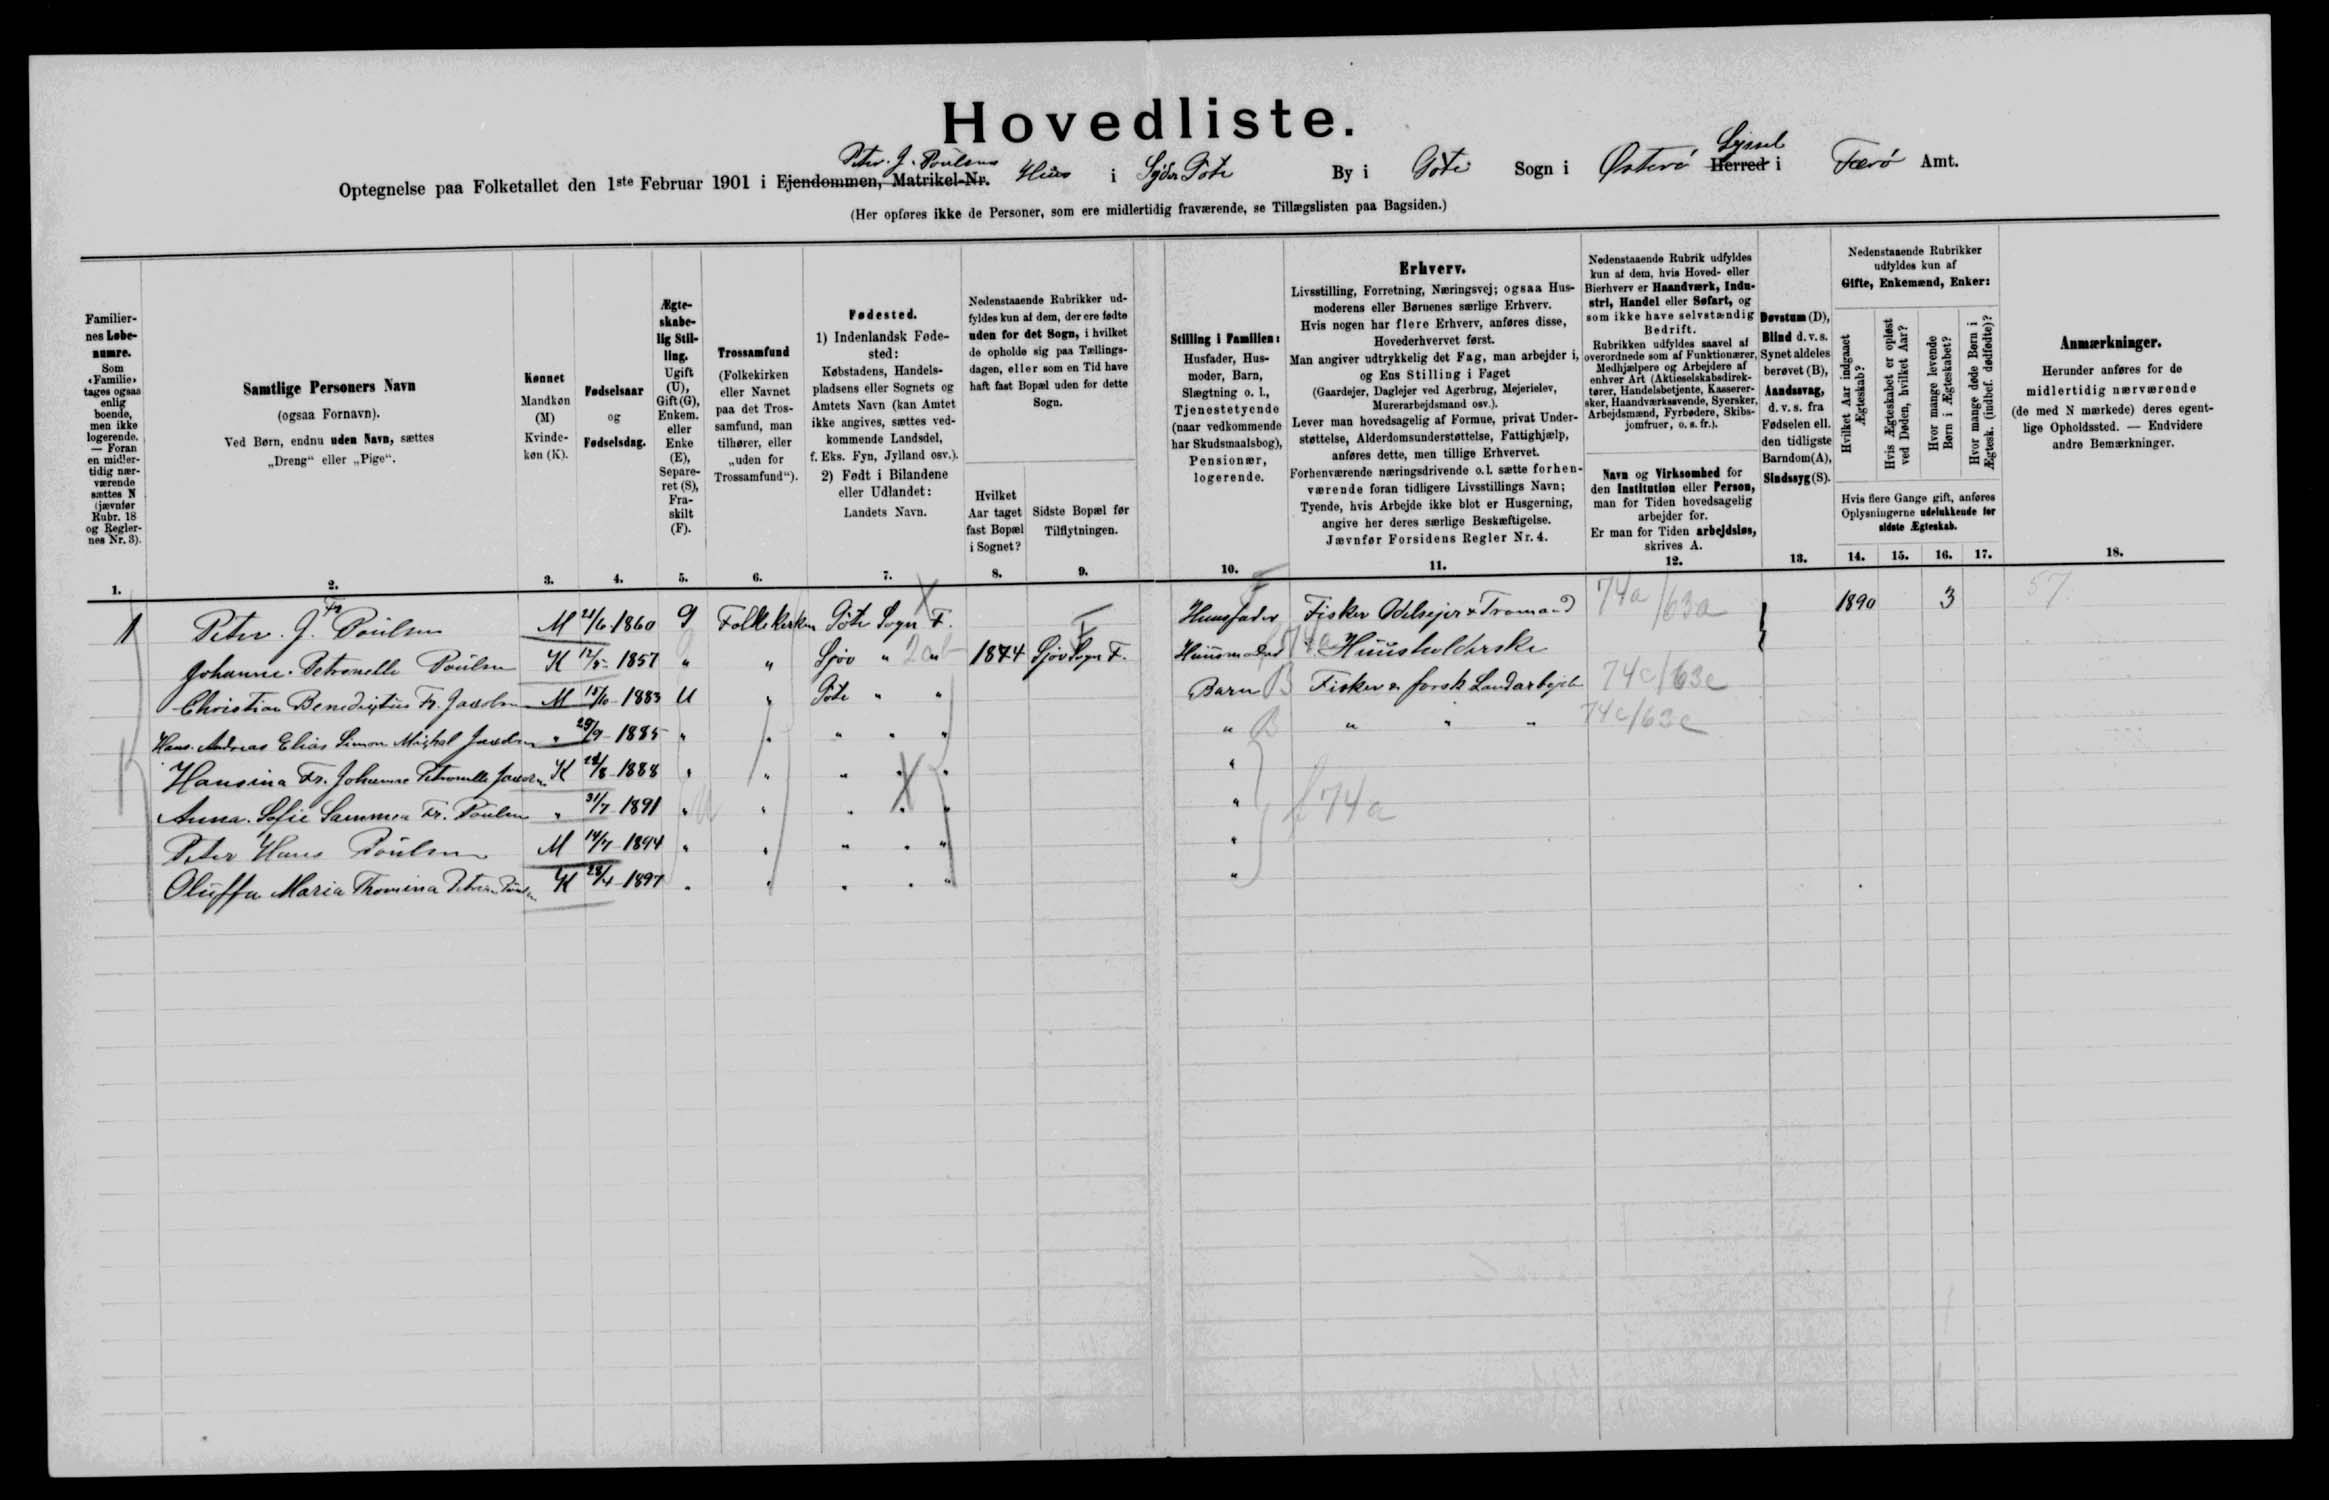 Hovedliste.
Peter. J. Poulsens Syssel
Optegnelse paa Folketallet den 1ste Februar 1901 i Ejendommen, Matrikel-Nr. Huus i Syder Göte By i Göte Sogn i Østerö Herred i Færö Amt.
(Her opføres ikke de Personer, som ere midlertidig fraværende, se Tillægslisten paa Bagsiden.)
Familier-
nes Løbe-
numre.
Som
«Familie»
tages ogsaa
enlig
boende,
men ikke
logerende.
— Foran
en midler-
tidig nær-
værende
sættes N
(jævnfør
Rubr. 18
og Regler-
nes Nr. 3).
1.
Samtlige Personers Navn
(ogsaa Fornavn).
Ved Børn, endnu uden Navn, sættes
„Dreng“ eller „Pige“.
2.
Kønnet
Mandkøn
(M)
Kvinde-
køn (K).
3.
Fødselsaar
og
Fødselsdag.
4.
Ægte-
skabe-
lig Stil-
ling.
Ugift
(U),
Gift (G),
Enkem.
eller
Enke
(E),
Separe-
ret (S),
Fra-
skilt
(F).
5.
Trossamfund
(Folkekirken
eller Navnet
paa det Tros-
samfund, man
tilhører, eller
„uden for
Trossamfund“).
6.
Fødested.
1) Indenlandsk Føde-
sted:
Købstadens, Handels-
pladsens eller Sognets og
Amtets Navn (kan Amtet
ikke angives, sættes ved-
kommende Landsdel,
f. Eks. Fyn, Jylland osv.).
2) Født i Bilandene
eller Udlandet:
Landets Navn.
7.
Nedenstaaende Rubrikker ud-
fyldes kun af dem, der ere fødte
uden for det Sogn, i hvilket
de opholde sig paa Tællings-
dagen, eller som en Tid have
haft fast Bopæl uden for dette
Sogn.
Hvilket
Aar taget
fast Bopæl
i Sognet?
8.
Sidste Bopæl før
Tilflytningen.
9.
Stilling i Familien:
Husfader, Hus-
moder, Barn,
Slægtning o. l.,
Tjenestetyende
(naar vedkommende
har Skudsmaalsbog),
Pensionær,
logerende.
10.
Erhverv.
Livsstilling, Forretning, Næringsvej; ogsaa Hus-
moderens eller Børnenes særlige Erhverv.
Hvis nogen har flere Erhverv, anføres disse,
Hovederhvervet først.
Man angiver udtrykkelig det Fag, man arbejder i,
og Ens Stilling i Faget
(Gaardejer, Daglejer ved Agerbrug, Mejerielev,
Murerarbejdsmand osv.).
Lever man hovedsagelig af Formue, privat Under-
støttelse, Alderdomsunderstøttelse, Fattighjælp,
anføres dette, men tillige Erhvervet.
Forhenværende næringsdrivende o.l. sætte forhen-
værende foran tidligere Livsstillings Navn;
Tyende, hvis Arbejde ikke blot er Husgerning,
angive her deres særlige Beskæftigelse.
Jævnfør Forsidens Regler Nr. 4.
11.
Nedenstaaende Rubrik udfyldes
kun af dem, hvis Hoved- eller
Bierhverv er Haandværk, Indu-
stri, Handel eller Søfart, og
som ikke have selvstændig
Bedrift.
Rubrikken udfyldes saavel af
overordnede som af Funktionærer,
Medhjælpere og Arbejdere af
enhver Art (Aktieselskabsdirek-
tører, Handelsbetjente, Kasserer-
sker, Haandværkssvende, Syersker,
Arbejdsmænd, Fyrbødere, Skibs-
jomfruer, o. s. fr.).
Navn og Virksomhed for
den Institution eller Person,
man for Tiden hovedsagelig
arbejder for.
Er man for Tiden arbejdsløs,
skrives A.
12.
Døvstum (D),
Blind d. v. s.
Synet aldeles
berøvet (B),
Aandssvag,
d. v. s. fra
Fødselen ell.
den tidligste
Barndom (A),
Sindssyg (S).
13.
Nedenstaaende Rubrikker
udfyldes kun af
Gifte, Enkemænd, Enker:
Hvilket Aar indgaaet
Ægteskab?
Hvis Ægteskabet er opløst
ved Døden, hvilket Aar?
Hvor mange levende
Børn i Ægteskabet?
Hvor mange døde Børn i
Ægtesk. (indbef. dødfødte)?
Hvis flere Gange gift, anføres
Oplysningerne udelukkende for
sidste Ægteskab.
14. 15. 16. 17.
Anmærkninger.
Herunder anføres for de
midlertidig nærværende
(de med N mærkede) deres egent-
lige Opholdssted. — Endvidere
andre Bemærkninger.
18.
1 Peter. J. Fr Poulsen M 21/6 1860 G Folkekirken Göte Sogn F. Huusfader Fisker Odelsejer & Tromand 74a/63a 1890 3 57
Johanne. Petronelle Poulsen K 12/5 - 1857 „ „ Sjov „ „ 1874 Sjov Sogn F. Huusmoder Huusholderske
Christian Benedigtus Fr. Jacobsen M 15/10 - 1883 U „ Göte „ „ Barn B Fisker & forsk Landarbejde 74c/63c
Hans. Andreas Elias Simon Mighal Jacobsen „ 29/9 - 1885 „ „ „ „ „ „ B „ „ „ 74c/63c
Hansina Fr. Johanne Petronelle Jacobsen K 28/8 - 1888 „ „ „ „ „ „
Anna. Sofie Sammea Fr. Poulsen „ 31/7 - 1891 „ „ „ „ „ „ f 74a
Peter Hans Poulsen M 14/7 - 1894 „ „ „ „ „ „
Oluffa Maria Thomina K 28/4 - 1897 „ „ „ „ „ „